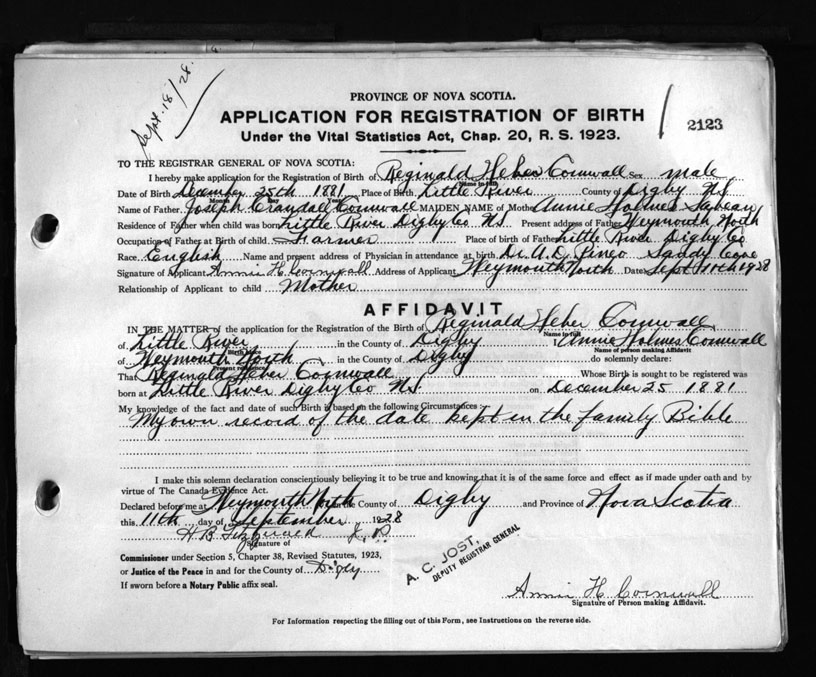 Sept. 18/28.
PROVINCE OF NOVA SCOTIA.
APPLICATION FOR REGISTRATION OF BIRTH
Under the Vital Statistics Act, Chap. 20, R. S. 1923.
2123
TO THE REGISTRAR GENERAL OF NOVA SCOTIA:
I hereby make application for the Registration of Birth of Reginald Heber Cornwall Sex male
Name in full
Date of Birth December 25th 1881 Place of Birth Little River County of Digby NS
Month Day Year
Name of Father Joseph Crandall Cornwall MAIDEN NAME of Mother Annie Holmes Sabean
Residence of Father when child was born Little River Digby Co NS Present address of Father Weymouth North
Occupation of Father at Birth of child Farmer Place of birth of Father Little River Digby Co
Race English Name and present address of Physician in attendance at birth Dr. A. D. Pineo Sandy Cove
Signature of Applicant Annie H Cornwall Address of Applicant Weymouth North Date Sept 11th 1928
Relationship of Applicant to child Mother
AFFIDAVIT
IN THE MATTER of the application for the Registration of the Birth of Reginald Heber Cornwall
Name in full
of Little River in the County of Digby I Annie Holmes Cornwall
Birth place
Name of person making Affidavit
of Weymouth North in the County of Digby do solemnly declare:
Present residence
That Reginald Heber Cornwall Whose Birth is sought to be registered was
born at Little River Digby Co NS. on December 25 1881
My knowledge of the fact and date of such Birth is based on the following Circumstances:
My own record of the date kept in the family Bible
I make this solemn declaration conscientiously believing it to be true and knowing that it is of the same force and effect as if made under oath and by
virtue of The Canada Evidence Act.
Declared before me at Weymouth North in the County of Digby and Province of Nova Scotia
this 11th day of September 1928
H. B. Fitzgerald J. P.
Signature of
Commissioner under Section 5, Chapter 38, Revised Statutes, 1923,
or Justice of the Peace in and for the County of Digby
If sworn before a Notary Public affix seal.
A. C. JOST,
DEPUTY REGISTRAR GENERAL
Annie H Cornwall
Signature of Person making Affidavit.
For Information respecting the filling out of this Form, see Instructions on the reverse side.